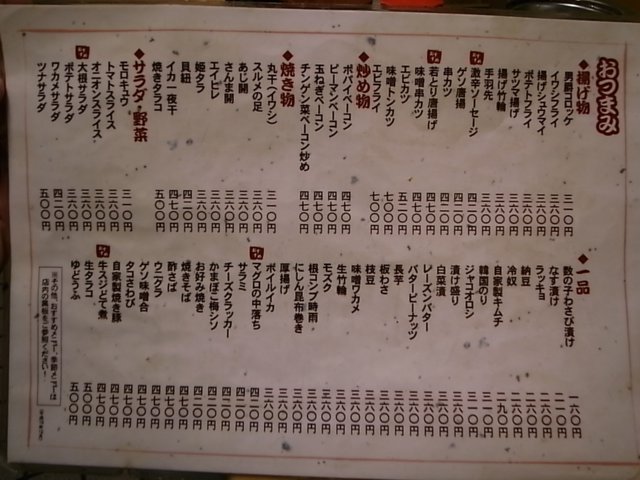 おつまみ
◆揚げ物
男爵コロッケ 三一〇円
イワシフライ 三六〇円
揚げシュウマイ 三六〇円
ポテトフライ 三六〇円
サツマ揚げ 三六〇円
揚げ竹輪 三六〇円
手羽先
激辛ソーセージ 四二〇円
ゲソ唐揚
串カツ
若とり唐揚げ 四七〇円
味噌串カツ 四七〇円
エビカツ 五二〇円
味噌トンカツ 七〇〇円
エビフライ 七〇〇円
◆炒め物
ポパイベーコン 四七〇円
ピーマンベーコン 四七〇円
玉ねぎベーコン 四七〇円
チンゲン菜ベーコン炒め 四七〇円
◆焼き物
丸干(イワシ) 三一〇円
スルメの足 三六〇円
あじ開 三六〇円
さんま開 三六〇円
エイヒレ 三六〇円
姫タラ 三六〇円
貝紐 四二〇円
イカ一夜干 四七〇円
焼きタラコ 五〇〇円
◆サラダ・野菜
モロキュウ 三一〇円
トマトスライス 三六〇円
オニオンスライス 三六〇円
大根サラダ 三六〇円
ポテトサラダ 三六〇円
ワカメサラダ 四二〇円
ツナサラダ 五〇〇円
◆一品
数の子わさび漬け 一六〇円
なす漬け 二一〇円
ラッキョ 二一〇円
納豆 二六〇円
冷奴 二六〇円
自家製キムチ 二九〇円
韓国のり 三一〇円
ジャコオロシ 三一〇円
漬け盛り 三六〇円
白菜漬 三六〇円
レーズンバター 三六〇円
バターピーナッツ 三六〇円
長芋 三六〇円
板わさ 三六〇円
枝豆 三六〇円
味噌ワカメ 三六〇円
生竹輪 三六〇円
モズク 三六〇円
根コンブ時雨 三六〇円
にしん昆布巻き 三六〇円
厚揚げ 三六〇円
ボイルイカ
マグロの中落ち 四二〇円
サラミ 四二〇円
チーズクラッカー 四二〇円
かまぼこ梅シソ 四二〇円
お好み焼き
焼きそば 四七〇円
酢さば 四七〇円
ウニクラ 四七〇円
ゲソ味噌合 四七〇円
タコさわび 四七〇円
自家製焼き豚 四七〇円
牛スジどて煮 四七〇円
生タラコ 五〇〇円
ゆどうふ 五〇〇円
※その他、おすすめメニュー、季節メニューは
店内の黒板をご参照ください!